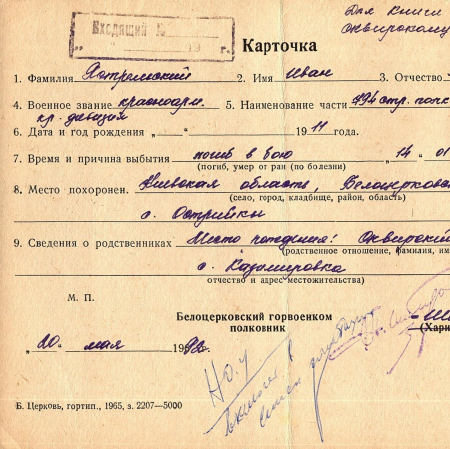 Для Книги
Сквирскому
Входящий №
19 г.
Карточка
1. Фамилия Хотримский 2. Имя Иван 3. Отчество
4. Воинское звание красноарм. 5. Наименование части 794 стр. полк
кр. дивизия
6. Дата и год рождения „ “ 1911 года.
7. Время и причина выбытия погиб в бою „14“ 01
(погиб, умер от ран (по болезни)
8. Место похоронен. Киевская область, Белоцерковс
(село, город, кладбище, район, область)
с. Острийки
9. Сведения о родственниках Место рождения: Сквирский
(родственное отношение, фамилия, им
с. Казимировка
отчество и адрес-местожительства)
М. П.
Белоцерковский горвоенком
полковник
(Хари
„20“ мая 1992г.
Но. У
Б. Церковь, гортип., 1965, з. 2207—5000